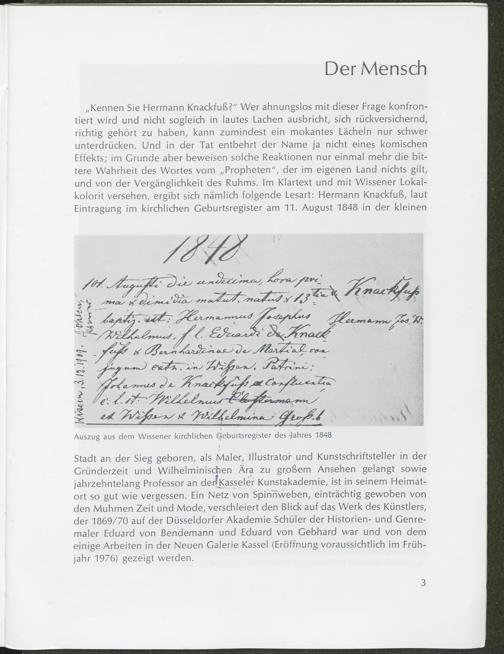 Der Mensch
„Kennen Sie Hermann Knackfuß?“ Wer ahnungslos mit dieser Frage konfron-
tiert wird und nicht sogleich in lautes Lachen ausbricht, sich rückversichernd,
richtig gehört zu haben, kann zumindest ein mokantes Lächeln nur schwer
unterdrücken. Und in der Tat entbehrt der Name ja nicht eines komischen
Effekts; im Grunde aber beweisen solche Reaktionen nur einmal mehr die bit-
tere Wahrheit des Wortes vom „Propheten“, der im eigenen Land nichts gilt,
und von der Vergänglichkeit des Ruhms. Im Klartext und mit Wissener Lokal-
kolorit versehen, ergibt sich nämlich folgende Lesart: Hermann Knackfuß, laut
Eintragung im kirchlichen Geburtsregister am 11. August 1848 in der kleinen
1848
101. Augusti die undecima, hora pri
ma & dimidia matut. natus & 13 Knackfuß
baptiz. est: Hermannus Josephus Hermann Jos W.
Wilhelmus, f. l. Eduardi de Knack
fuß & Bernhardinae de Martial con
jugum cath. in Wißen, Patrini:
Johannes de Knackfuß Confluentia
Wilhelmus
ex Wißen & Wilhelmina
Auszug aus dem Wissener kirchlichen Geburtsregister des Jahres 1848
Stadt an der Sieg geboren, als Maler, Illustrator und Kunstschriftsteller in der
Gründerzeit und Wilhelminischen Ära zu großem Ansehen gelangt sowie
jahrzehntelang Professor an der Kasseler Kunstakademie, ist in seinem Heimat-
ort so gut wie vergessen. Ein Netz von Spinnweben, einträchtig gewoben von
den Muhmen Zeit und Mode, verschleiert den Blick auf das Werk des Künstlers,
der 1869/70 auf der Düsseldorfer Akademie Schüler der Historien- und Genre-
maler Eduard von Bendemann und Eduard von Gebhard war und von dem
einige Arbeiten in der Neuen Galerie Kassel (Eröffnung voraussichtlich im Früh-
jahr 1976) gezeigt werden.
3